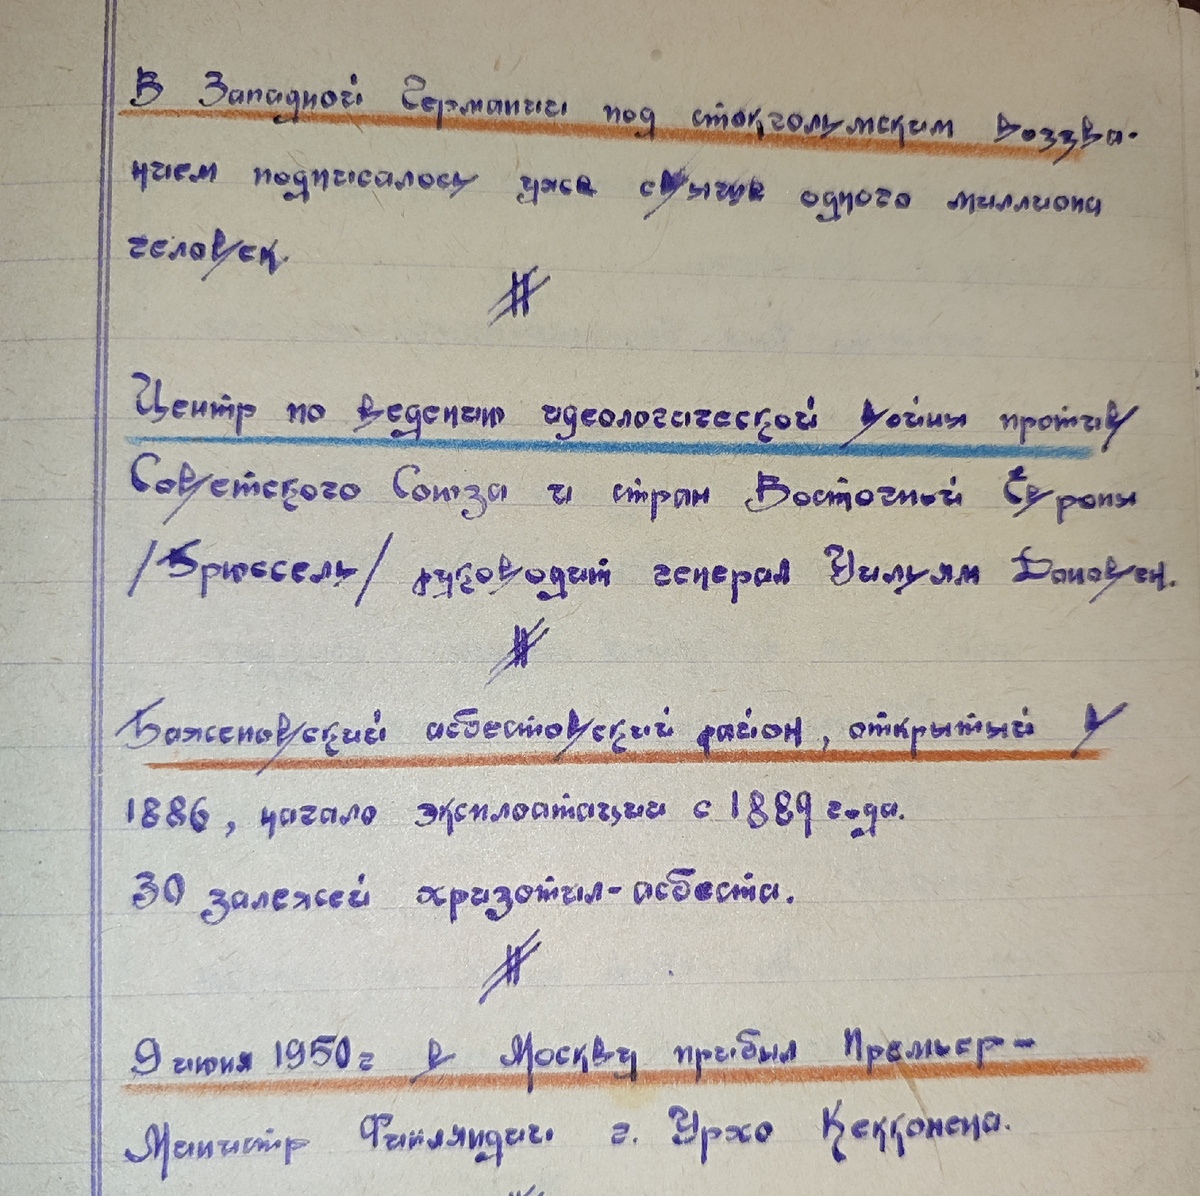 В Западной Германии под стокгольмским Воззва-
нием подписалось уже свыше одного миллиона
человек.
#
Центр по ведению идеологической войны против
Советского Союза и стран Восточной Европы
/Брюссель/ руководит генерал Уильям Доновен.
#
Баженовский асбестовский район, открытый в
1886, начало эксплоатации с 1889 года.
30 залежей хризотил-асбеста.
#
9 июня 1950 г в Москву прибыл Премьер-
Министр Финляндии г. Урхо Кекконена.